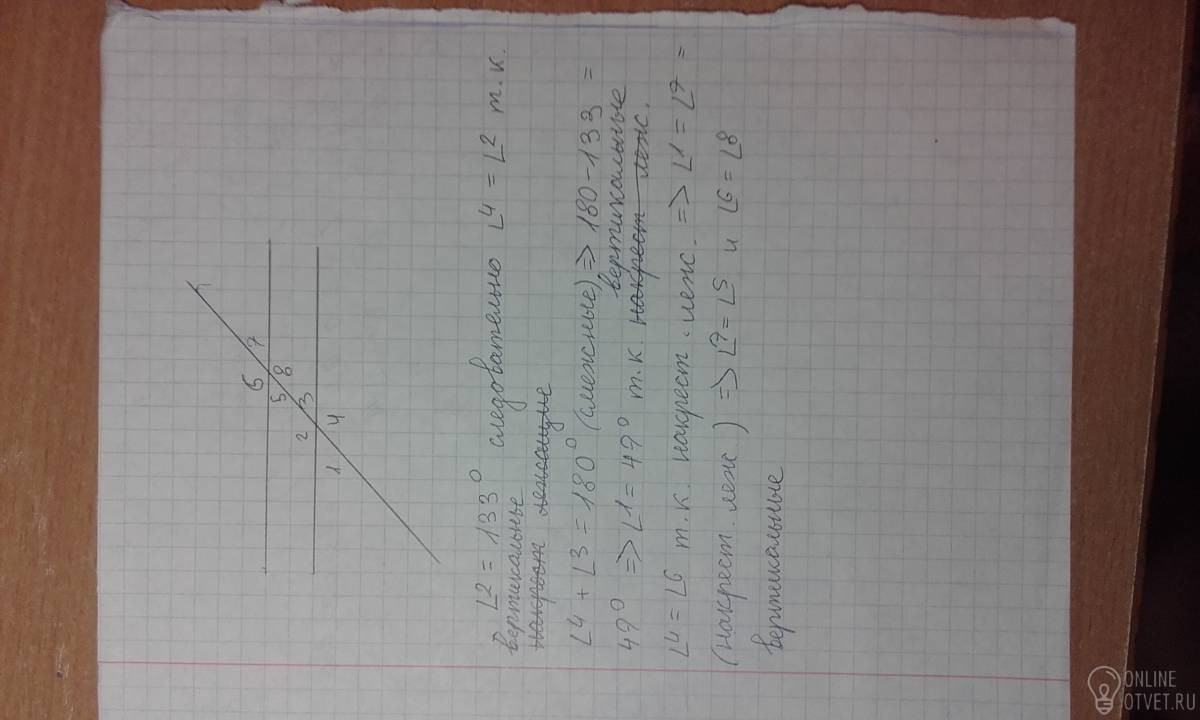 6 7
5 8
2 3
1 4
∠2 = 133° следовательно ∠4 = ∠2 т.к.
вертикальные
накрест лежащие
∠4 + ∠3 = 180° (смежные) => 180-133 =
вертикальные
47° => ∠1 = 47° т.к. накрест леж.
∠4 = ∠6 т.к. накрест. леж. => ∠1 = ∠7 =
(накрест. леж) => ∠7 = ∠5 и ∠6 = ∠8
вертикальные
ONLINE
OTVET.RU